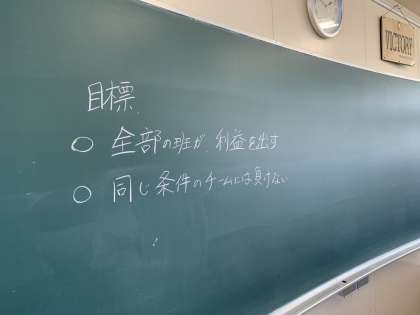 目標
○ 全部の班が、利益を出す
○ 同じ条件のチームには負けない
VICTORY